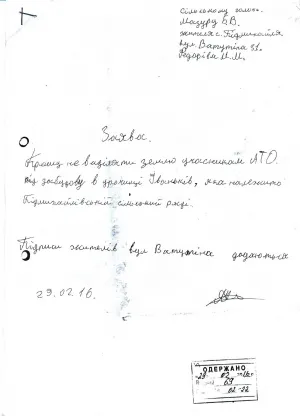 Сільському голові
Мазуру В.В.
жителя с. Підмихайля
вул. Ватутіна 51.
Федоріва М.М.
Заява.
Прошу не виділяти землю учасникам АТО
під забудову в урочищі Іваньків, яка належить
Підмихайлівській сільській раді.
Підписи жителів вул Ватутіна додаються
29.02.16.
ОДЕРЖАНО
29 02
69
02-22